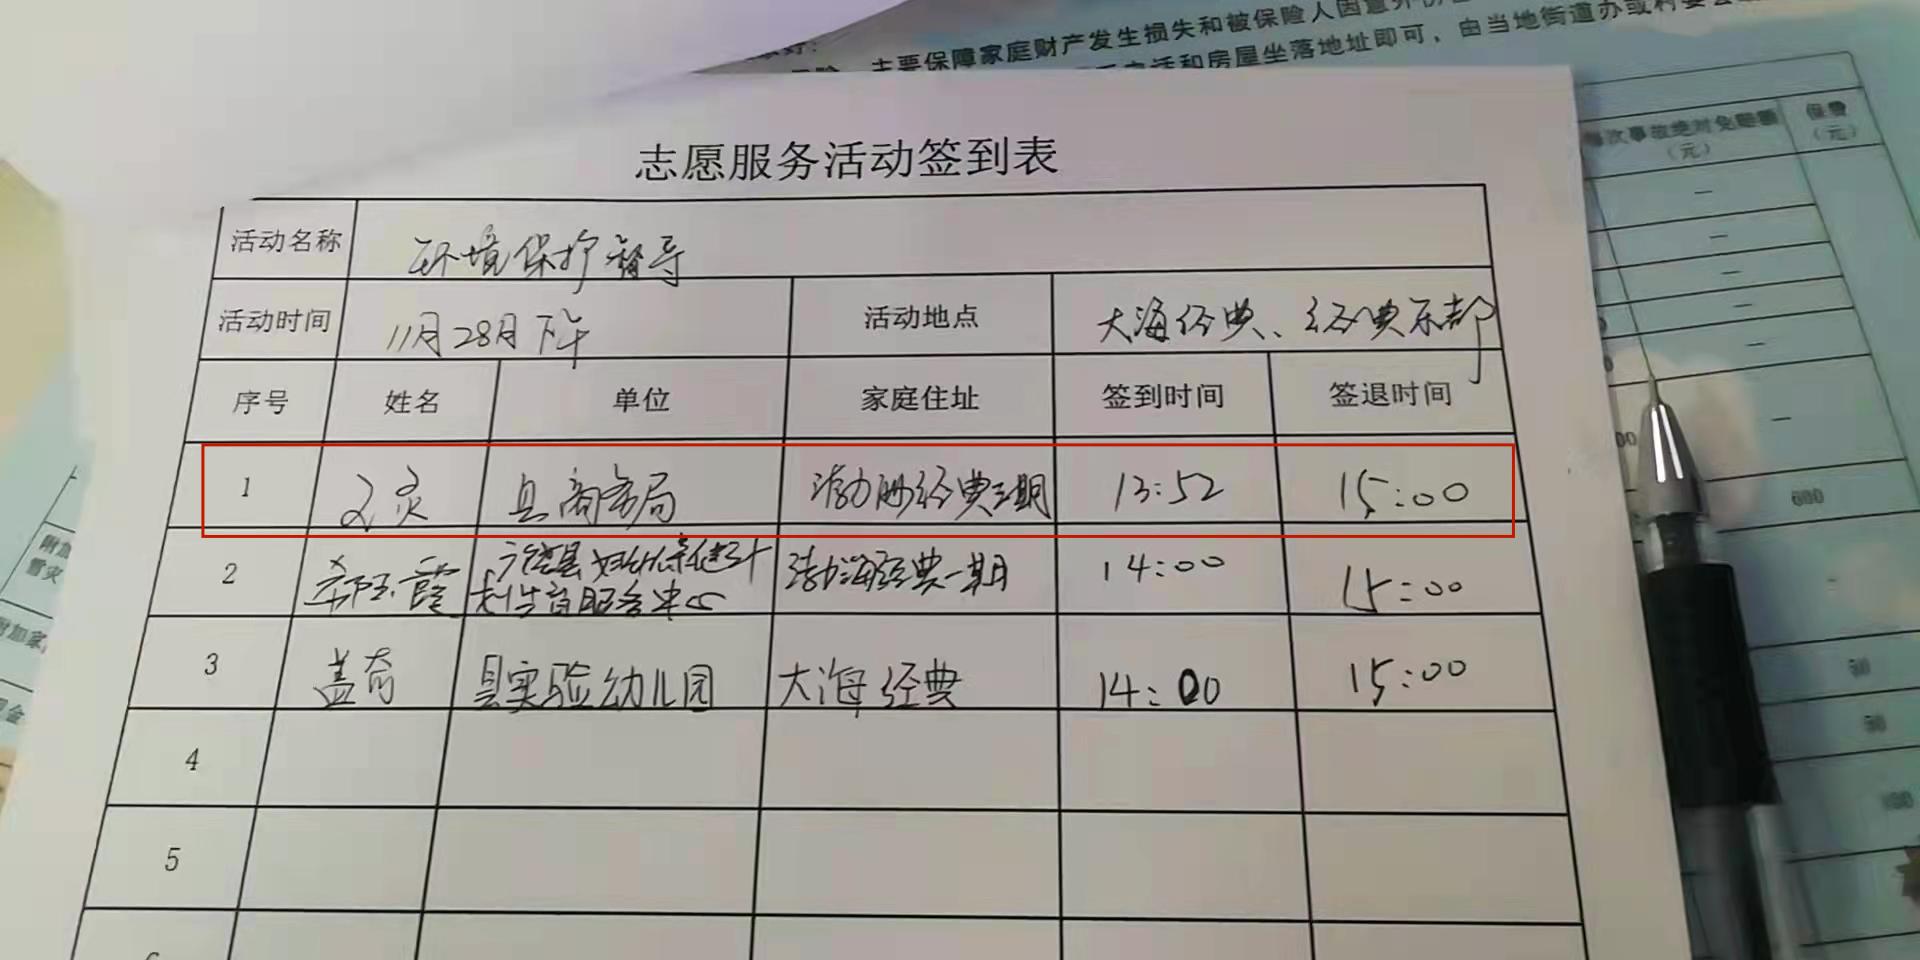 主要保障家庭财产发生损失和被保险人因意外
和房屋坐落地址即可，由当地街道办或村委会
每次事故绝对免赔额
（元）
保费
（元）
志愿服务活动签到表
活动名称 环境保护督导
活动时间 11月28日下午 活动地点 大海经典、经典东都
序号 姓名 单位 家庭住址 签到时间 签退时间
1 县商务局 渤海经典三期 13:52 15:00
2 霞 县妇幼保健计 渤海经典一期 14:00 15:00
划生育服务中心
3 盖奇 县实验幼儿园 大海经典 14:00 15:00
4
5
600
50
50
100
附加
雪灾
附加家